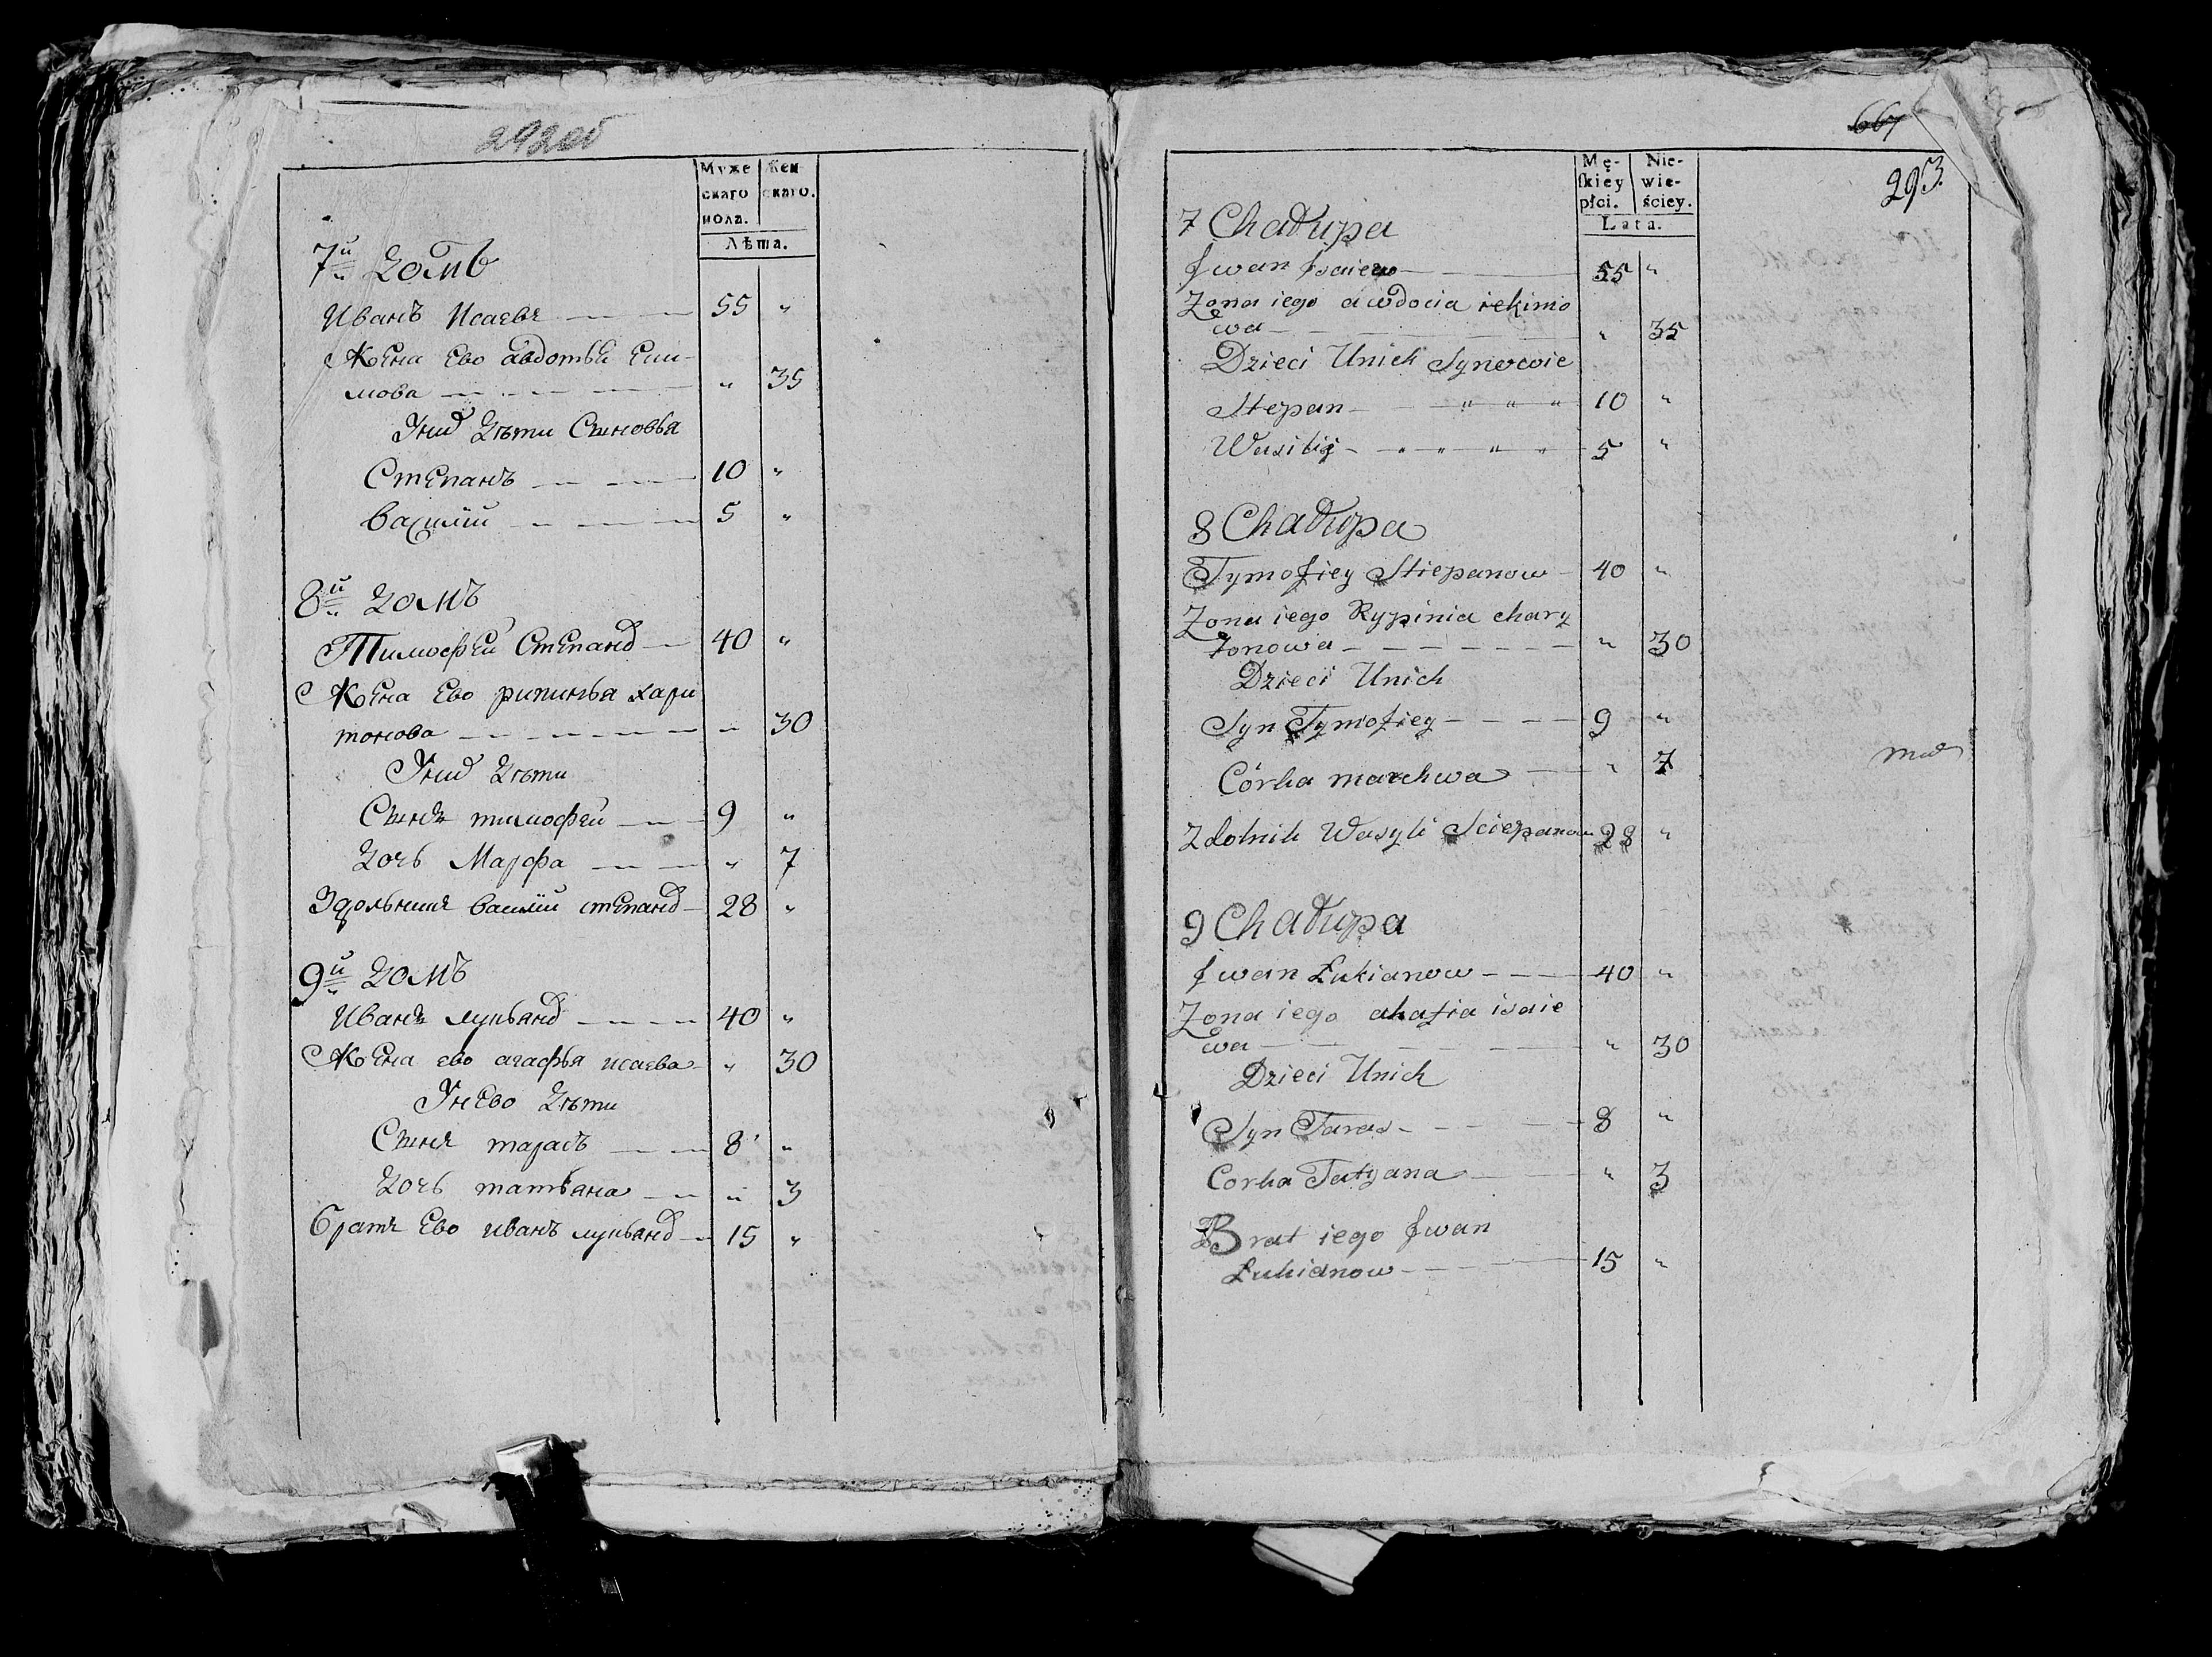 292об
Муже Жен
скаго скаго.
пола.
Лѣта.
7й домъ
Иванъ Исаевъ 55 "
Жена Ево авдотья Еки-
мова " 35
Уних дѣти Сыновья
Степанъ 10 "
Василiй 5 "
8й домъ
Тимофей Степанов 40 "
Жена Ево рипинья хари
тонова " 30
Уних дѣти
Сынъ тимофей 9 "
дочь Марфа " 7
Здольникъ василiй степанов 28 "
9й домъ
Иванъ лукьянов 40 "
Жена ево агафья исаева " 30
Унево дѣти
Сынъ тарасъ 8 "
дочь татьяна " 3
братъ Ево иванъ лукьянов 15 "
667
293
Mę- Nie-
skiey wie-
płci. ściey.
Lata.
7 Chałupa
Iwan Isaiew 55 "
Zona iego awdocia iekimo
wa " 35
Dzieci Unich Synowie
Stepan 10 "
Wasiliy 5 "
8 Chałupa
Tymofiey Stiepanow 40 "
Zona iego Rypinia chary
tonowa " 30
Dzieci Unich
Syn Tymofiey 9 "
Córka marchwa " 7
Zdolnik Wasyli Sciepanow 28 "
9 Chałupa
Iwan Łukianow 40 "
Zona iego ahafia isaie
wa " 30
Dzieci Unich
Syn Taras 8 "
Corka Tatyana " 3
Brat iego Iwan
Łukianow 15 "